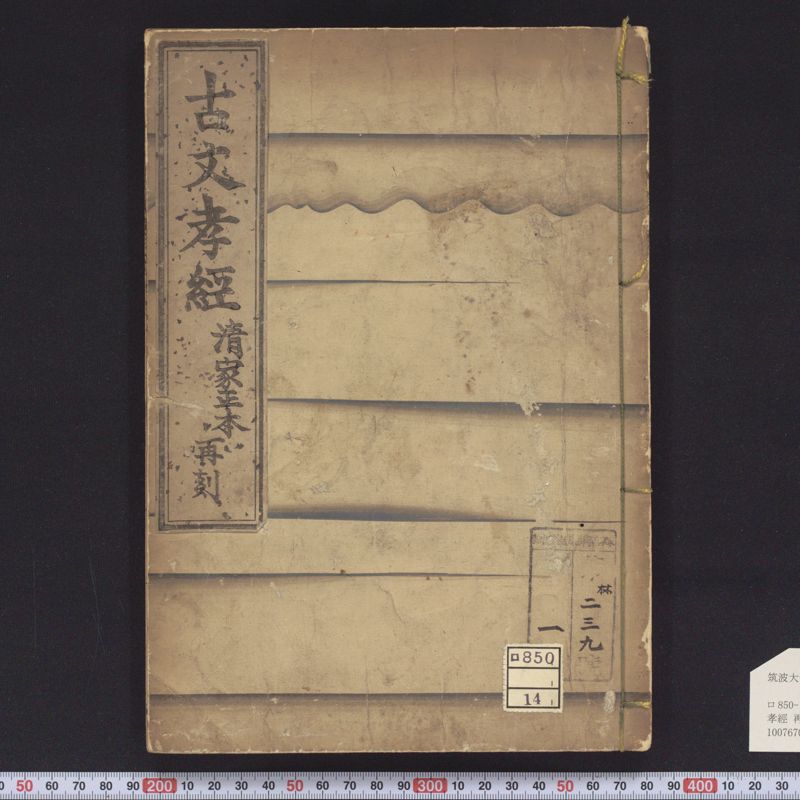 古文孝經
清家正本
再刻
林
二三九
一
ロ850
14
筑波大
ロ850-
孝經 再
1007670
50 60 70 80 90 200 10 20 30 40 50 60 70 80 90 300 10 20 30 40 50 60 70 80 90 400 10 20 30